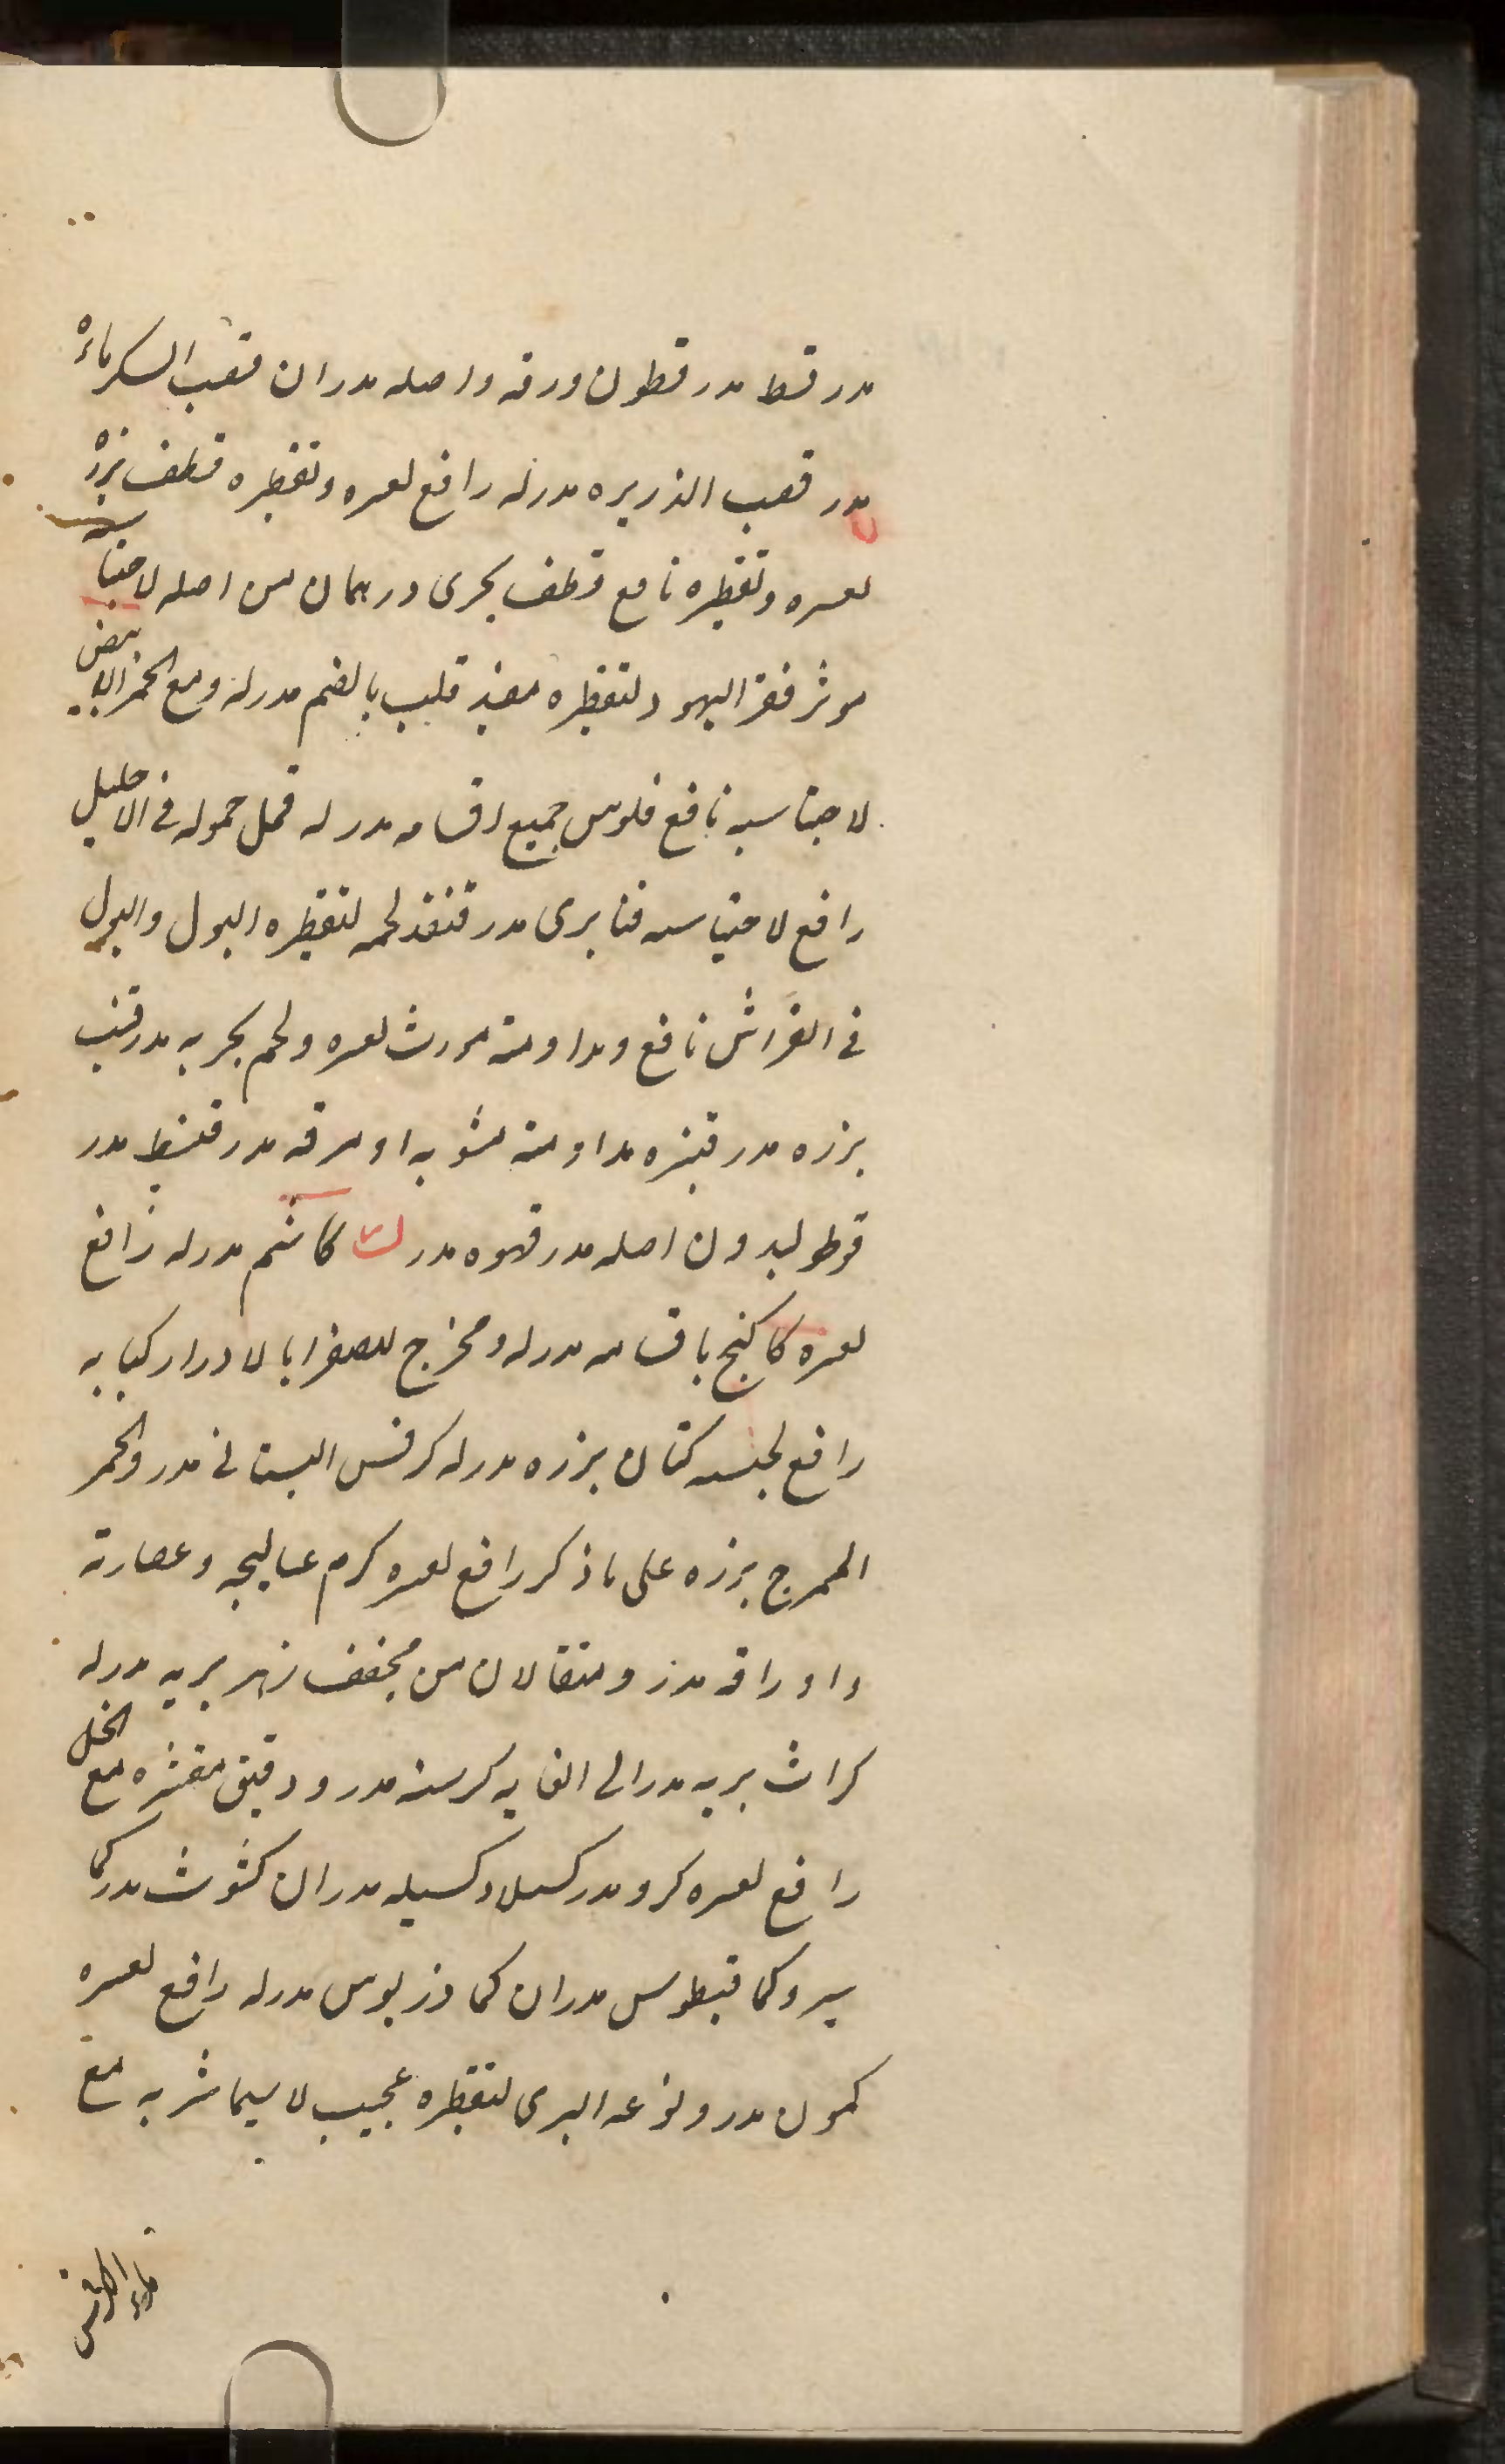 مدر قسط مدر قطون ورقه واصله مدران قصب السكر ماؤه
مدر قصب الذريره مدرله رافع لعسره وتقطيره قطف بزره
لعسره وتقطيره نافع قطف بحرى درهمان من اصله لاحتباسه
موثر قفر اليهود لتقطيره مفيد قلب بالضم مدرله ومع الخمر الابيض
لاحتباسه نافع فلوس جميع اقسامه مدرله قمل حموله فى الاحليل
رافع لاحتباسه قنابرى مدر قنفذ لحمه لتقطيره البول والبول
فى الفراش نافع ومداومته مورث لعسره ولحم بحريه مدر قنب
بزره مدر قنبره مداومته مشويه او مرقه مدر قنبيط مدر
قوطوليدون اصله مدر قهوه مدر ك كاشم مدرله رافع
لعسره كاكنج باقسامه مدرله ومخرج للصفرا بالادرار كبابه
رافع لحبسه كتان بزره مدرله كرفس البستانى مدر والخمر
الممزج بزره على ما ذكر رافع لعسره كرم عساليجه وعصارته
واوراقه مدر ومثقالان من مجفف زهر بريه مدرله
كراث بريه مدر الى الغايه كرسنه مدر ودقيق مقشره مع الخل
رافع لعسره كرو مدر كسيلا وكسيله مدران كشوث مدر كما
سير وكمافيطوس مدران كماذريوس مدرله رافع لعسره
كمون مدر ونوعه البرى لتقطيره عجيب لاسيما شربه مع
ماء الكرفس